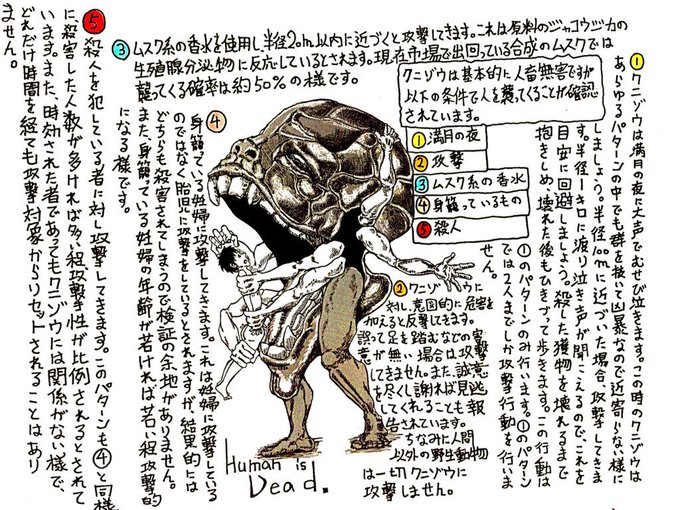 ①クニゾウは満月の夜に大声でむせび泣きます。この時のクニゾウは
あらゆるパターンの中でも群を抜いて凶暴なので近寄らない様に
しましょう。半径100mに近づいた場合、攻撃してきま
す。半径1キロに渡り泣き声が聞こえるので、これを
目安に回避しましょう。殺した獲物を壊れるまで
抱きしめ、壊れた後もひきづって歩きます。この行動は
①のパターンのみ行います。①のパターン
では2人までしか攻撃行動を行いま
せん。
クニゾウは基本的に人畜無害ですが
以下の条件で人を襲ってくることが確認
されています。
①満月の夜
②攻撃
③ムスク系の香水
④身籠っているもの
⑤殺人
②クニゾウに
対し、意図的に危害を
加えると反撃してきます。
誤って足を踏むなどの害
意が無い場合は攻撃
してきません。また、誠意
を尽くし謝れば見逃
してくれることも報
告されています。
ちなみに人間
以外の野生動物
は一切クニゾウに
攻撃しません。
③ムスク系の香水を使用し、半径20m以内に近づくと攻撃してきます。これは原料のジャコウジカの
生殖腺分泌物に反応しているとされます。現在市場で出回っている合成のムスクでは
襲ってくる確率は約50%の様です。
④身籠っている妊婦に攻撃してきます。これは妊婦に攻撃している
のではなく胎児に攻撃をしているとされますが、結果的には
どちらも殺害されてしまうので検証の余地がありません。
また、身籠っている妊婦の年齢が若ければ若い程攻撃的
になる様です。
⑤殺人を犯している者に対し攻撃してきます。このパターンも④と同様
に、殺害した人数が多ければ多い程攻撃性が比例されるとされて
います。また、時効された者であってもクニゾウには関係がない様で、
どれだけ時間を経ても攻撃対象からリセットされることはあり
ません。
Human is
Dead.